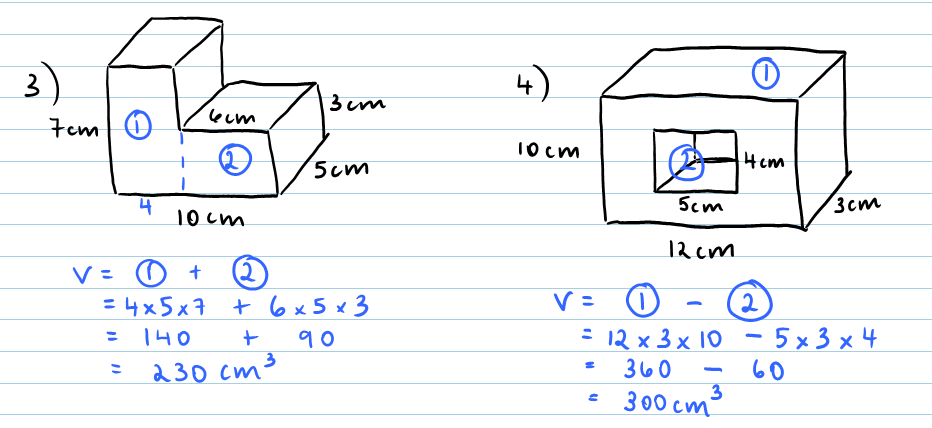 3)
7cm ① 6cm 3cm
② 5cm
4 10cm
V = ① + ②
= 4×5×7 + 6×5×3
= 140 + 90
= 230 cm³
4)
①
10cm ② 4cm
5cm 3cm
12cm
V = ① - ②
= 12×3×10 - 5×3×4
= 360 - 60
= 300cm³